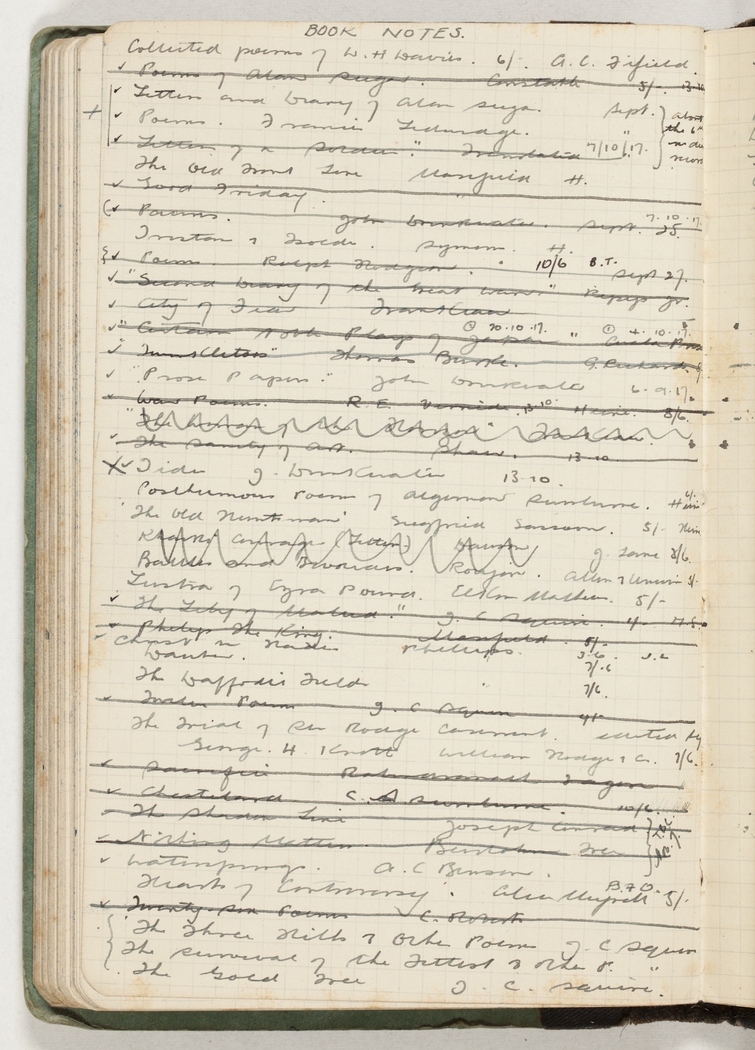 BOOK NOTES.
Collected poems of W. H Davies. 6/. A. C. Fifield.
Poems of Alan Seegar. Constable 5/-
Letters and Diary of Alan Seegar. Sept.
Poems. Francis Ledwidge. "
Letters of a Soldier." Translated 7/10/17.
The Old Front Line Masefield H.
Good Friday.
Poems. John Drinkwater. Sept. 25. 7.10.17.
Tristan & Isolde. Symons. H.
Poems. Ralph Hodgson. " 10/6 B.T.
"Second Diary of the Great Warr" Pepys Jr. Sept 27.
City of Fear
"Certain Noble Plays of Japan" Cuala 20.10.17.
"Twinkletoes" Thomas Burke. G. Richards.
"Prose Papers." John Drinkwater 6.9.17.
War Poems. R. E. Vernède. 13.10 Heine. 3/6.
"The
The Sanity of Art. Shaw. 13.10
Tides J. Drinkwater 13-10.
Posthumous Poems of Algernon Swinburne. 6/.
'The Old Huntsman' Siegfried Sassoon. 5/- Hein
Khaki Courage (Letters) Dawson J. Lane 3/6.
Battles and Bivouacs. Allen & Unwin 5/-
Lustra of Ezra Pound. Elkin Mathews. 5/-
The Lily of Malud." J. C Squire.
Philip the King. Masefield. 5/-
Christ in Hades Phillips. 3.6.
7/.6
The Daffodil Fields " 7/6.
J. C Squire
The Trial of Sir Roger Casement. edited by
George. H. Knott William Hodge & Co. 7/6.
Sacrifice Rabindranath Tagore
Chastelard C. A Swinburne. 10/6.
The Shadow Line Joseph Conrad
Nothing Matters. Beerbohm Tree
Watersprings. A. C Benson.
Hearts of Controversy. Alice Meynell 5/-
Twenty-six Poems
The Three Hills & Other Poems J. C Squire
The Survival of the Fittest & Other P. "
The Gold Tree J. C. Squire.